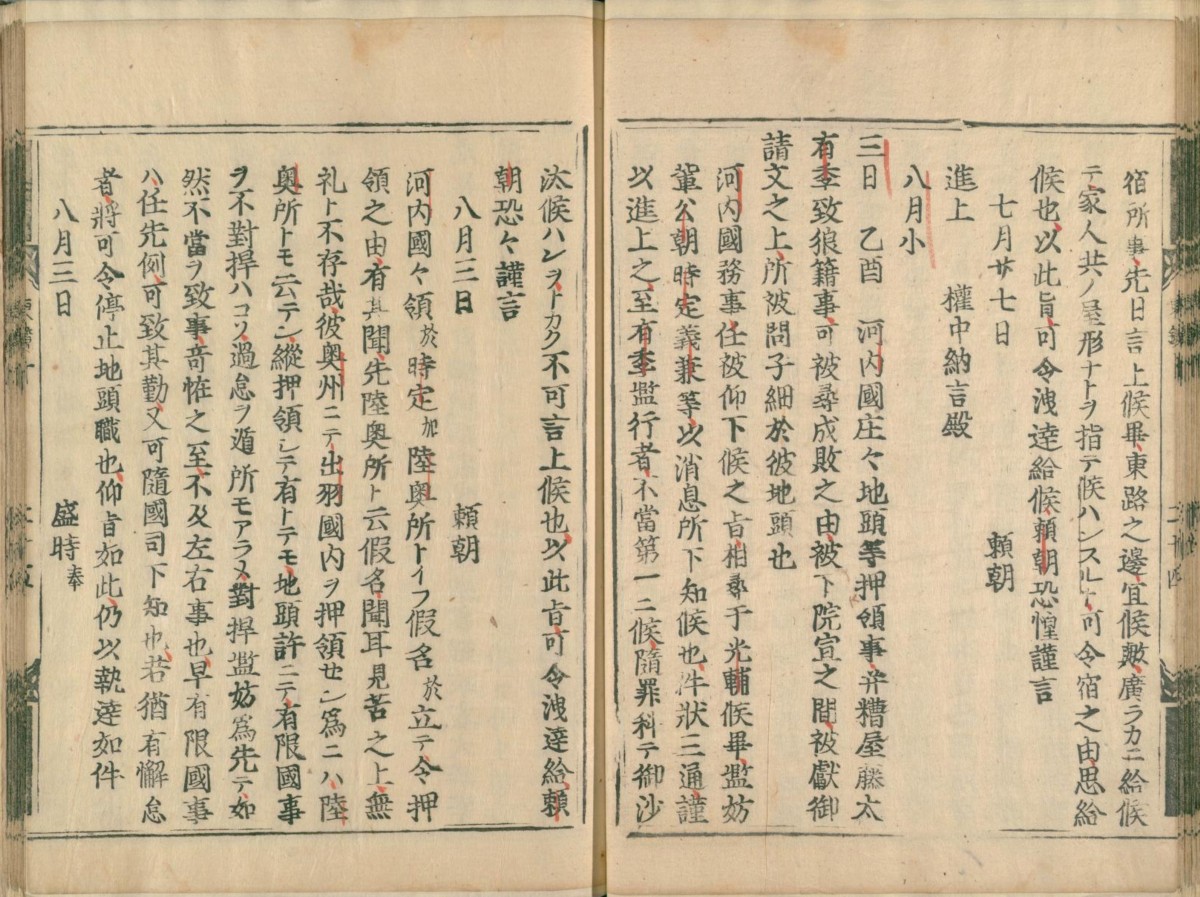 宿所事、先日言上候畢、東路之邊宜候歟、廣ラカニ給候
テ、家人共ノ屋形ナトヲ指テ候ハンスルト可令宿之由、思給
候也、以此旨可令洩達給候、頼朝恐惶謹言
七月廿七日 頼朝
進上 權中納言殿
八月小
三日 乙酉 河内國庄々地頭等押領事、并糟屋藤太
有季致狼籍事、可被尋成敗之由、被下院宣之間、被獻御
請文之上、所被問子細於彼地頭也
河内國務事、任被仰下候之旨、相尋于光輔候畢、濫妨
輩公朝時定義兼等、以消息所下知候也、件状三通謹
以進上之、至有季濫行者、不當第一ニ候、隨罪科テ御沙
汰候ハンヲ、トカク不可言上候也、以此旨可令洩達給、頼
朝恐々謹言
八月三日 頼朝
河内國々領於時定加陸奥所トイフ假名於立テ、令押
領之由、有其聞、先陸奥所ト云假名、聞耳見苦之上、無
礼ト不存哉、彼奥州ニテ出羽國内ヲ押領セン爲ニハ、陸
奥所トモ云テン、縱押領シテ有トテモ、地頭許ニテ、有限國事
ヲ不對捍ハコソ、過怠ヲ遁所モアラメ、對捍濫妨爲先テ、如
然不當ヲ致事、奇恠之至、不及左右事也、早有限國事
ハ、任先例、可致其勤、又可隨國司下知也、若猶有懈怠
者、將可令停止地頭職也、仰旨如此、仍以執達如件
八月三日 盛時奉